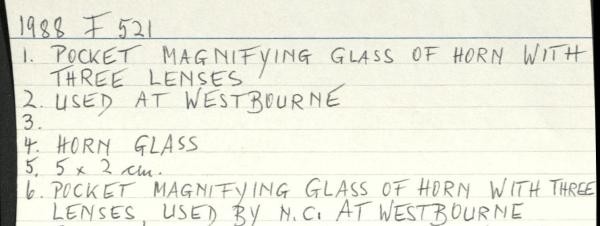 1988 F 521
1. POCKET MAGNIFYING GLASS OF HORN WITH
THREE LENSES
2. USED AT WESTBOURNE
3.
4. HORN GLASS
5. 5 x 2 cm.
6. POCKET MAGNIFYING GLASS OF HORN WITH THREE
LENSES, USED BY N.C. AT WESTBOURNE